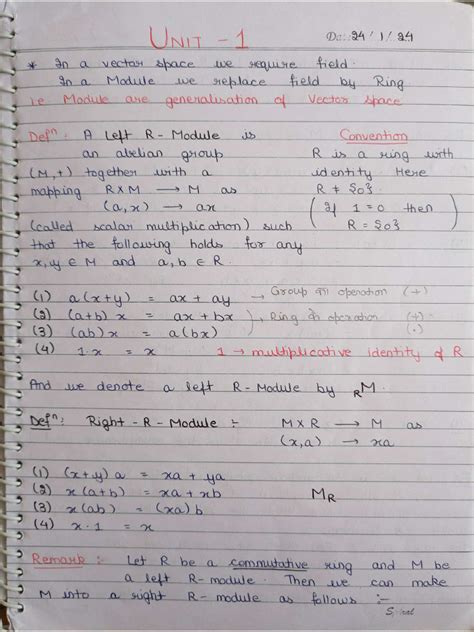 UNIT - 1
Dt: 24/1/24
* In a vector space we require field.
In a Module we replace field by Ring.
i.e Module are generalisation of Vector space
Defⁿ: A Left R-Module is
an abelian group
(M,+) together with a
mapping R×M → M as
(a,x) → ax
(called scalar multiplication) such
that the following holds for any
x,y ∈ M and a,b ∈ R.
Convention
R is a ring with
identity Here
R ≠ {0}.
(If 1=0 then
R = {0})
(1) a(x+y) = ax + ay → Group का operation (+)
(2) (a+b)x = ax + bx
(3) (ab)x = a(bx)
), Ring के operation (+)
(·)
(4) 1·x = x 1 → multiplicative identity of R
And we denote a left R-Module by ᵣM.
Defⁿ: Right-R-Module :- M×R → M as
(x,a) → xa
(1) (x+y)a = xa + ya
(2) x(a+b) = xa + xb
(3) x(ab) = (xa)b
(4) x·1 = x
Mᵣ
Remark :- Let R be a commutative ring and M be
a left R-module. Then we can make
M into a right R-module as follows :-
Spiral